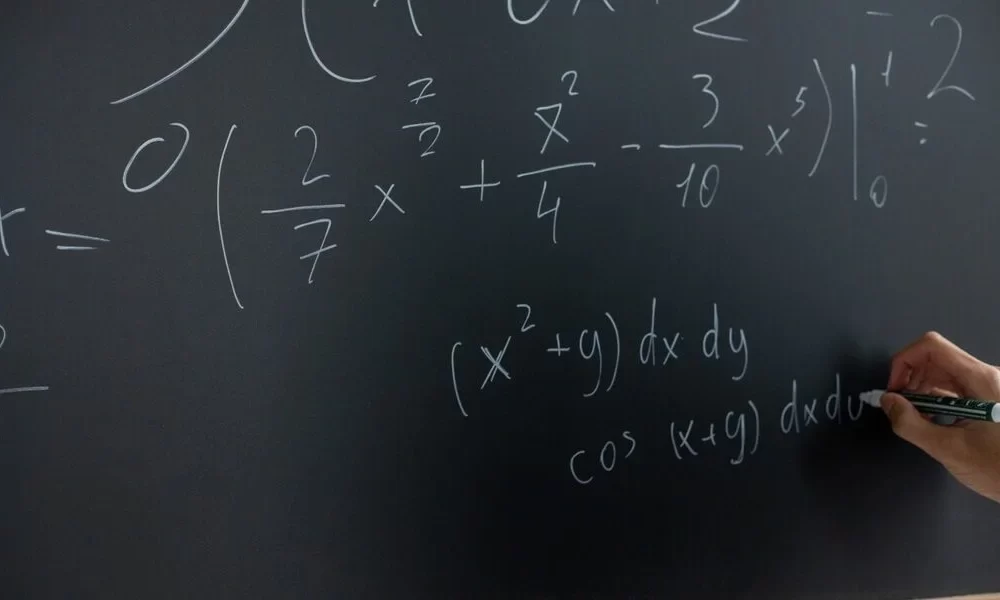 2
0 ( 2/7 x^(7/2) + x^2/4 - 3/10 x^5 ) |_0^1 =
=
(x^2 + y) dx dy
cos (x+y) dx d